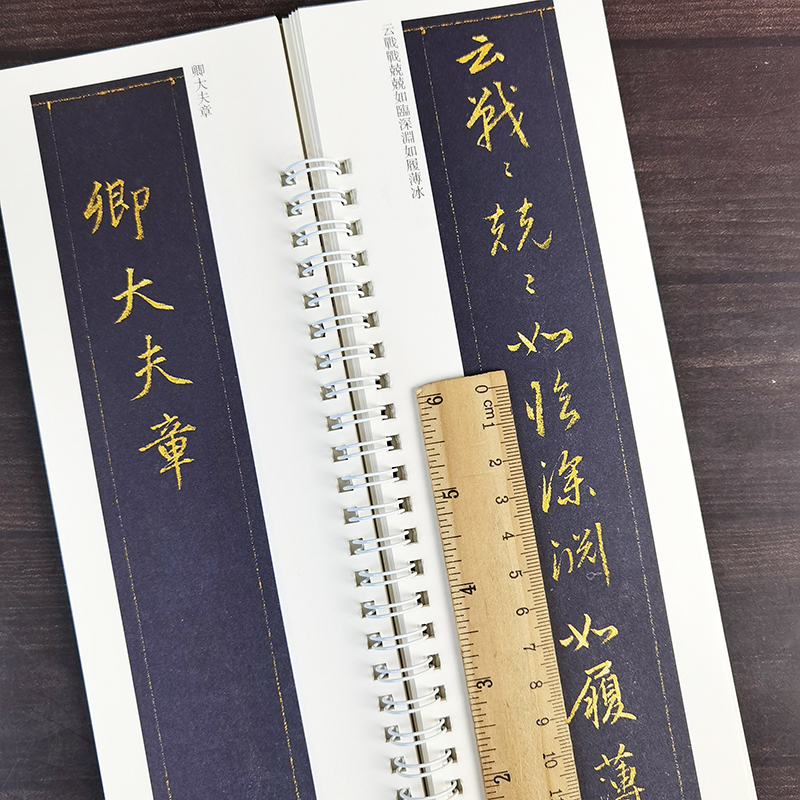 云戰〻兢〻如臨深淵如履薄
云戰戰兢兢如臨深淵如履薄冰
卿大夫章
卿大夫章
0 cm1 2 3 4 5 6 7 8 9 10
6 5 4 3 2